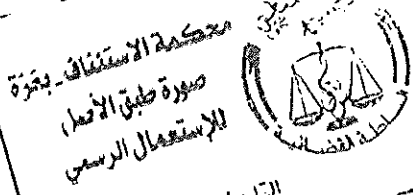 محكمة الاستئناف - بغزة
صورة طبق الأصل
للإستعمال الرسمي
السلطة القضائية